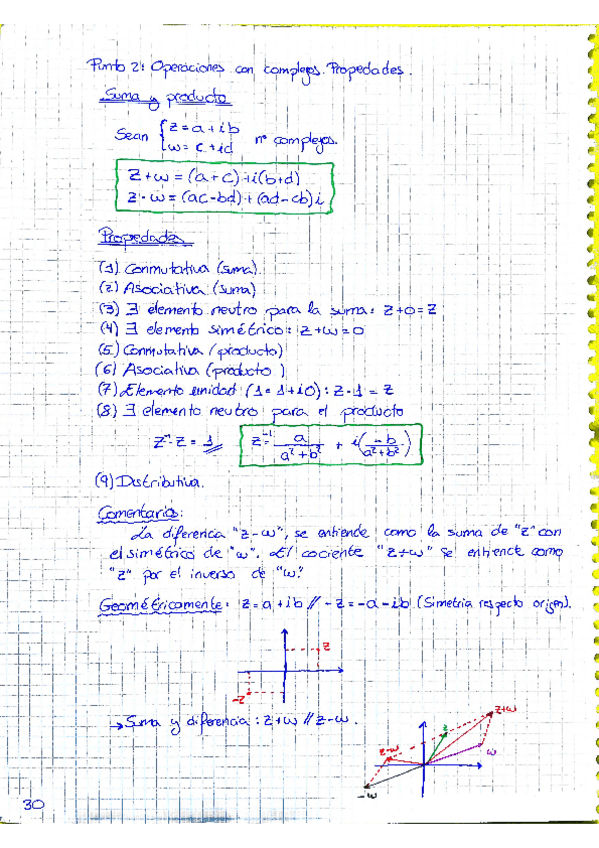 Punto 2: Operaciones con complejos. Propedades.
Suma y producto
Sean { z = a + ib
w = c + id nos complejos.
z + w = (a + c) + i(b + d)
z · w = (ac - bd) + (ad - cb)i
Propedades
(1) Conmutativa (suma)
(2) Asociativa (suma)
(3) ∃ elemento neutro para la suma: z + 0 = z
(4) ∃ elemento simétrico: z + w = 0
(5) Conmutativa (producto)
(6) Asociativa (producto)
(7) Elemento unidad (1 = 1 + i0): z · 1 = z
(8) ∃ elemento neutro para el producto
z⁻¹ · z = 1 z⁻¹ = a/(a² + b²) + i(-b/(a² + b²))
(9) Distributiva.
Comentarios:
La diferencia "z - w", se entiende como la suma de "z" con
el simétrico de "w". El cociente "z ÷ w" se entiende como
"z" por el inverso de "w".
Geométricamente: z = a + ib // -z = -a - ib (Simetria respecto origen).
z
-z
→ Suma y diferencia: z + w // z - w.
z+w
z
z-w
w
-w
30